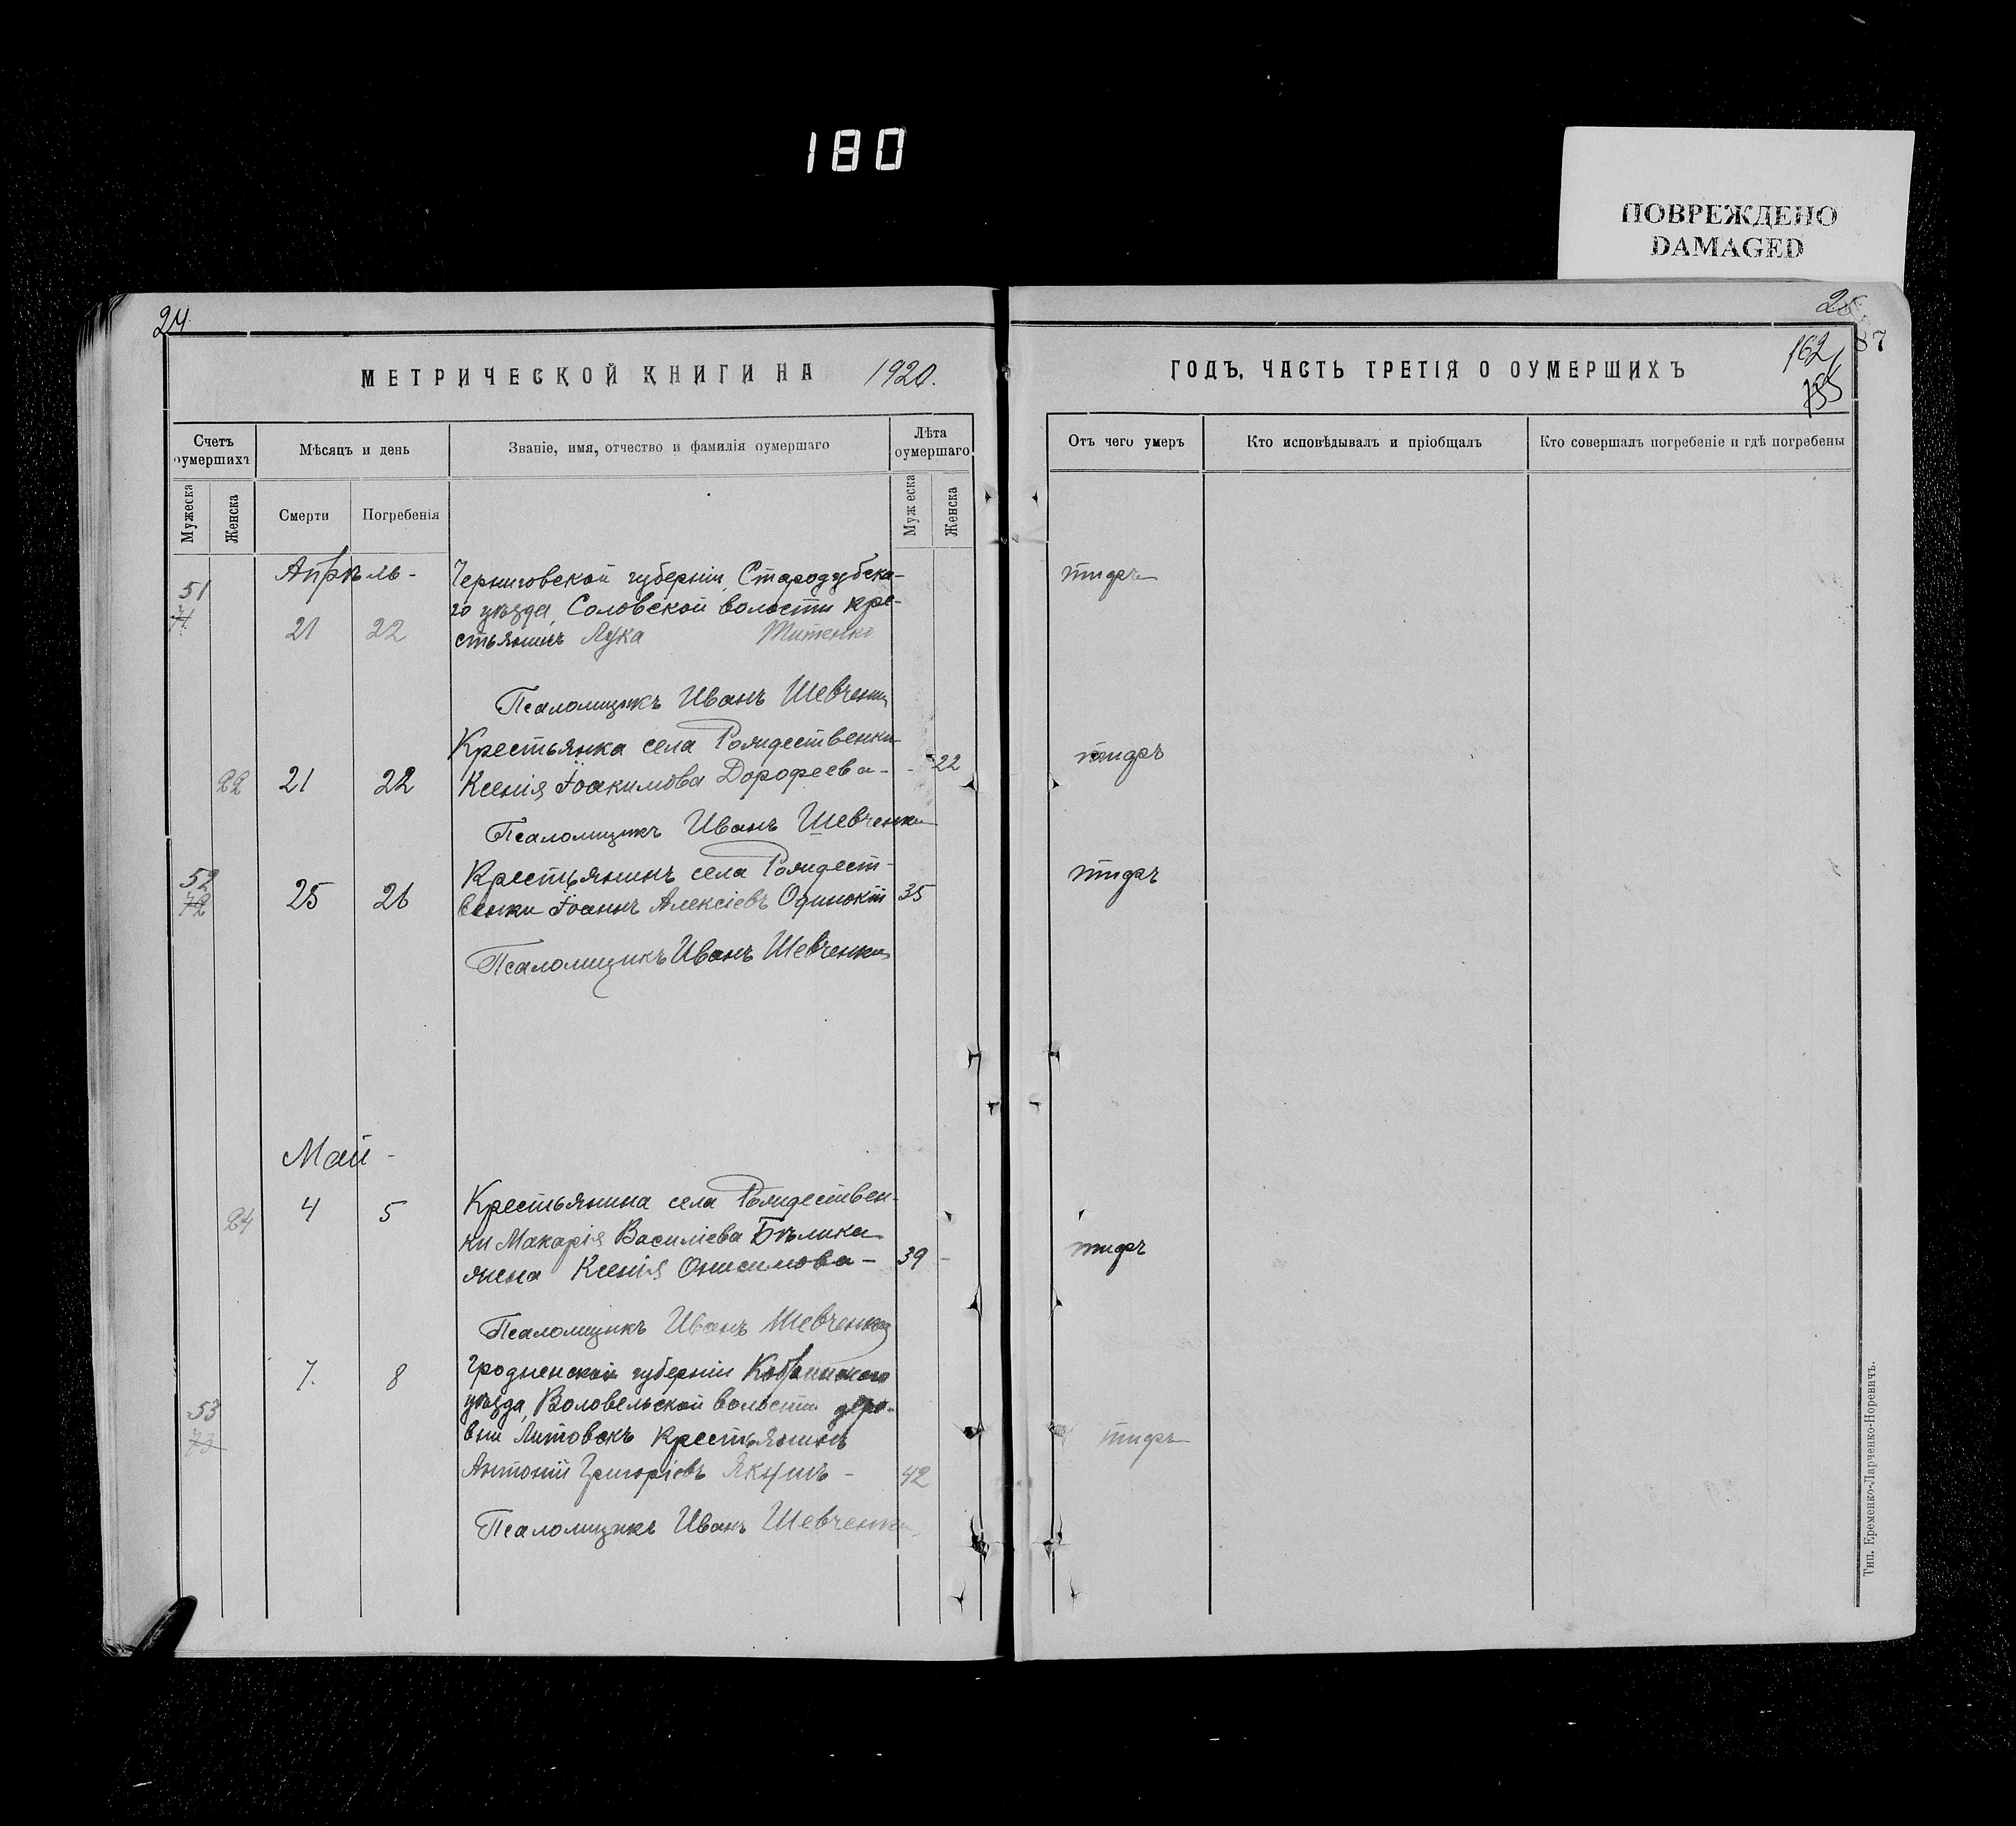 180
ПОВРЕЖДЕНО
DAMAGED
24
МЕТРИЧЕСКОЙ КНИГИ НА 1920.
Счетъ оумершихъ
Мѣсяцъ и день
Званіе, имя, отчество и фамилія оумершаго
Лѣта оумершаго
Мужеска
Женска
Смерти
Погребенія
Мужеска
Женска
Апрѣль-
51
71
21 22
Черниговской губерніи, Стародубска-
го уѣзда, Соловской волости кре-
стьянинъ Лука Титенко
Псаломщикъ Иванъ Шевченко
22 21 22
Крестьянка села Рождественки
Ксенія Іоакимова Дорофеева- 22
Псаломщикъ Иванъ Шевченко
52
72
25 26
Крестьянинъ села Рождест-
венки Іоаннъ Алексіевъ Одинокій 35
Псаломщикъ Иванъ Шевченко
Май-
24 4 5
Крестьянина села Рождествен-
ки Макарія Василіева Бѣлика
жена Ксенія Онисимова- 39
Псаломщикъ Иванъ Шевченко
53
73
7. 8
Гродненской губерніи Кобринского
уѣзда, Воловельской волости дере-
вни Литовскъ крестьянинъ
Антоній Григоріевъ Якушъ- 42
Псаломщикъ Иванъ Шевченко
87
162
155
ГОДЪ, ЧАСТЬ ТРЕТІЯ О ОУМЕРШИХЪ
Отъ чего умеръ
Кто исповѣдывалъ и пріобщалъ
Кто совершалъ погребеніе и гдѣ погребены
тифъ
тифъ
тифъ
тифъ
тифъ
Тип. Еременко-Ларченко-Норевичъ.